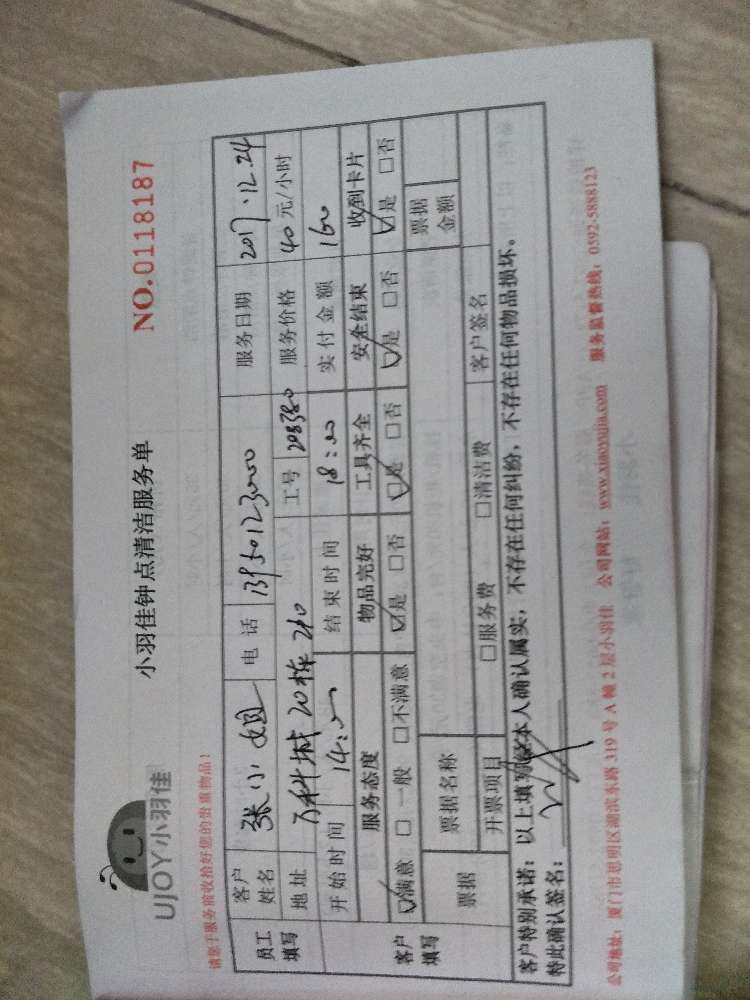 UJOY小羽佳
小羽佳钟点清洁服务单
NO.0118187
请您于服务前收拾好您的贵重物品！
员工填写
客户姓名 张小姐 电话 13950123000 服务日期 2017.12.24
地址 万科城20栋210 工号 208380 服务价格 40元/小时
开始时间 14:00 结束时间 18:00 实付金额 160
客户填写
服务态度 物品完好 工具齐全 安全结束 收到卡片
☑满意 □一般 □不满意 ☑是 □否 ☑是 □否 ☑是 □否 ☑是 □否
票据 票据名称 票据金额
开票项目 □服务费 □清洁费 客户签名
客户特别承诺：以上填写经本人确认属实，不存在任何纠纷，不存在任何物品损坏。
特此确认签名：
公司地址：厦门市思明区湖滨东路319号A幢2层小羽佳 公司网站：www.xiaoyujia.com 服务监督热线：0592-5888123